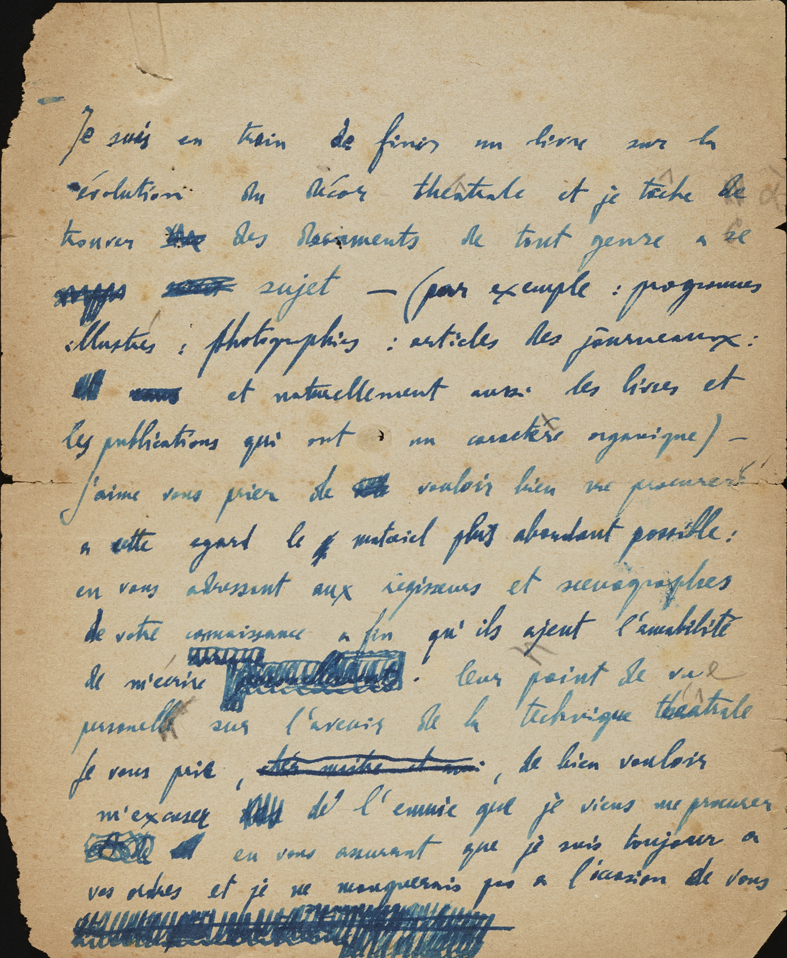 Je suis en train de finir un livre sur la
évolution du décor théatrale et je tâche de
trouver des documents de tout genre a se
sujet — (par exemple : programmes
illustrés ; photographies : articles des journeaux :
et naturellement aussi les livres et
les publications qui ont un caractère organique) —
j'aime vous prier de vouloir bien me procurer
a cette egard le materiel plus abondant possible :
en vous adressant aux régisseurs et scenographes
de votre connaissance a fin qu'ils ajent l'amabilité
de m'écrire leur point de vue
personell sur l'avenir de la technique théatrale
Je vous prie, cher maitre et ami, de bien vouloir
m'excuser de l'ennuie que je viens me procurer
en vous assurant que je suis toujour a
vos ordres et je ne manquerais pas a l'occasion de vous